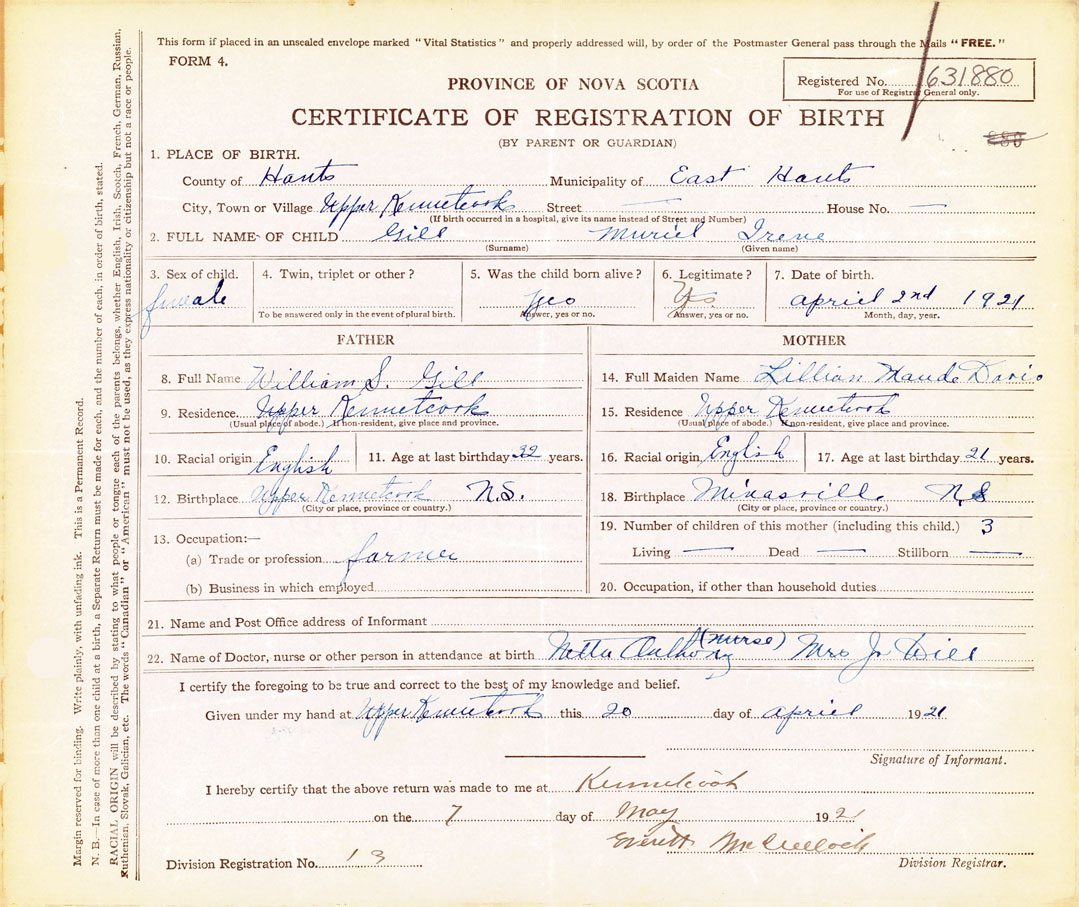 This form if placed in an unsealed envelope marked "Vital Statistics" and properly addressed will, by order of the Postmaster General pass through the Mails "FREE."
FORM 4.
Registered No. 631880
For use of Registrar General only.
PROVINCE OF NOVA SCOTIA
CERTIFICATE OF REGISTRATION OF BIRTH
(BY PARENT OR GUARDIAN)
1. PLACE OF BIRTH.
County of Hants Municipality of East Hants
City, Town or Village Upper Kennetcook Street — House No. —
(If birth occurred in a hospital, give its name instead of Street and Number)
2. FULL NAME OF CHILD Gill Muriel Irene
(Surname) (Given name)
3. Sex of child. 4. Twin, triplet or other? 5. Was the child born alive? 6. Legitimate? 7. Date of birth.
female yes Yes april 2nd 1921
To be answered only in the event of plural birth. Answer, yes or no. (Answer, yes or no. Month, day, year.
FATHER MOTHER
8. Full Name William S. Gill 14. Full Maiden Name Lillian Maude Davis
9. Residence. Upper Kennetcook 15. Residence Upper Kennetcook
(Usual place of abode.) If non-resident, give place and province. (Usual place of abode.) If non-resident, give place and province.
10. Racial origin English 11. Age at last birthday 32 years. 16. Racial origin English 17. Age at last birthday 21 years.
12. Birthplace Upper Kennetcook N.S. 18. Birthplace Minasville N.S
(City or place, province or country.) (City or place, province or country.)
13. Occupation:— 19. Number of children of this mother (including this child.) 3
(a) Trade or profession farmer Living — Dead — Stillborn —
(b) Business in which employed 20. Occupation, if other than household duties
21. Name and Post Office address of Informant
22. Name of Doctor, nurse or other person in attendance at birth Anthony (nurse) Mrs
I certify the foregoing to be true and correct to the best of my knowledge and belief.
Given under my hand at Upper Kennetcook this 20 day of april 1921
Signature of Informant.
I hereby certify that the above return was made to me at Kennetcook
on the 7 day of May 192
Everett McCulloch
Division Registration No. 13 Division Registrar.
Margin reserved for binding. Write plainly, with unfading ink. This is a Permanent Record.
N. B.—In case of more than one child at a birth, a Separate Return must be made for each, and the number of each, in order of birth, stated.
RACIAL ORIGIN will be described by stating to what people or tongue each of the parents belongs, whether English, Irish, Scotch, French, German, Russian,
Ruthenian, Slovak, Galician, etc. The words "Canadian" or "American" must not be used, as they express nationality or citizenship but not a race or people.